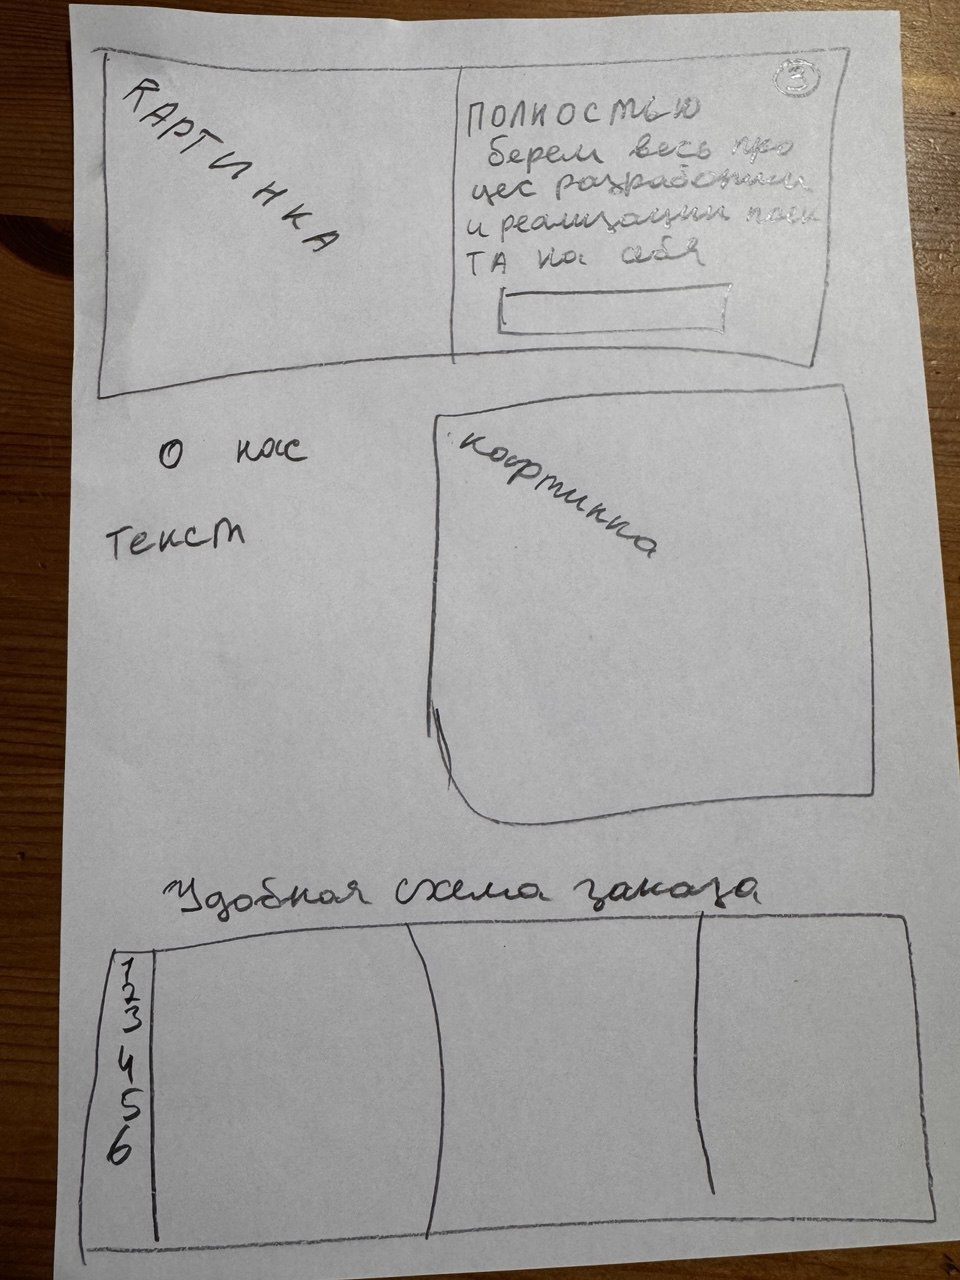 КАРТИНКА
3
ПОЛНОСТЬЮ
берем весь про
цес разработки
и реализации проек
ТА на себя
О нас
картинка
Текст
Удобная схема заказа
1
2
3
4
5
6